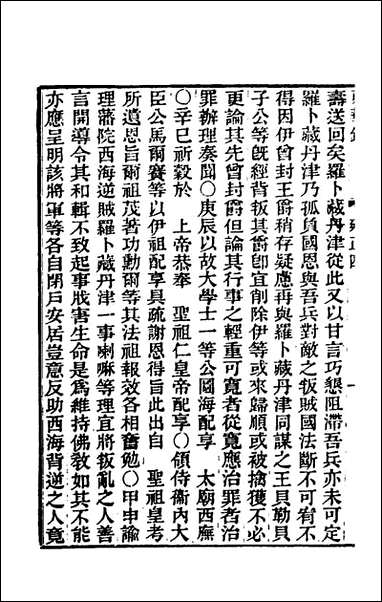 壽送回矣羅卜藏丹津從此又以甘言巧懇阻滯吾兵亦未可定
羅卜藏丹津乃孤負國恩與吾兵對敵之叛賊國法斷不可宥不
得因伊曾封王爵稍存疑應再與羅卜藏丹津同謀之王貝勒貝
子公等旣經背叛其爵卽宜削除伊等或來歸順或被擒獲不必
更論其先曾封爵但論其行事之輕重可寬者從寬應治罪者治
罪辦理奏聞〇庚辰以故大學士一等公圖海配享　太廟西廡
〇辛巳祈穀於　上帝恭奉　聖祖仁皇帝配享〇領侍衞內大
臣公馬爾賽等以伊祖配享具疏謝恩得旨此出自　聖祖皇考
所遺恩旨爾祖茂著功勳爾等其法祖報效各相奮勉〇甲申諭
理藩院西海逆賊羅卜藏丹津一事喇嘛等理宜將叛亂之人善
言開導令其和輯不致起事戕害生命是爲維持佛敎如其不能
亦應呈明該將軍等各自閉戶安居豈意反助西海背逆之人竟